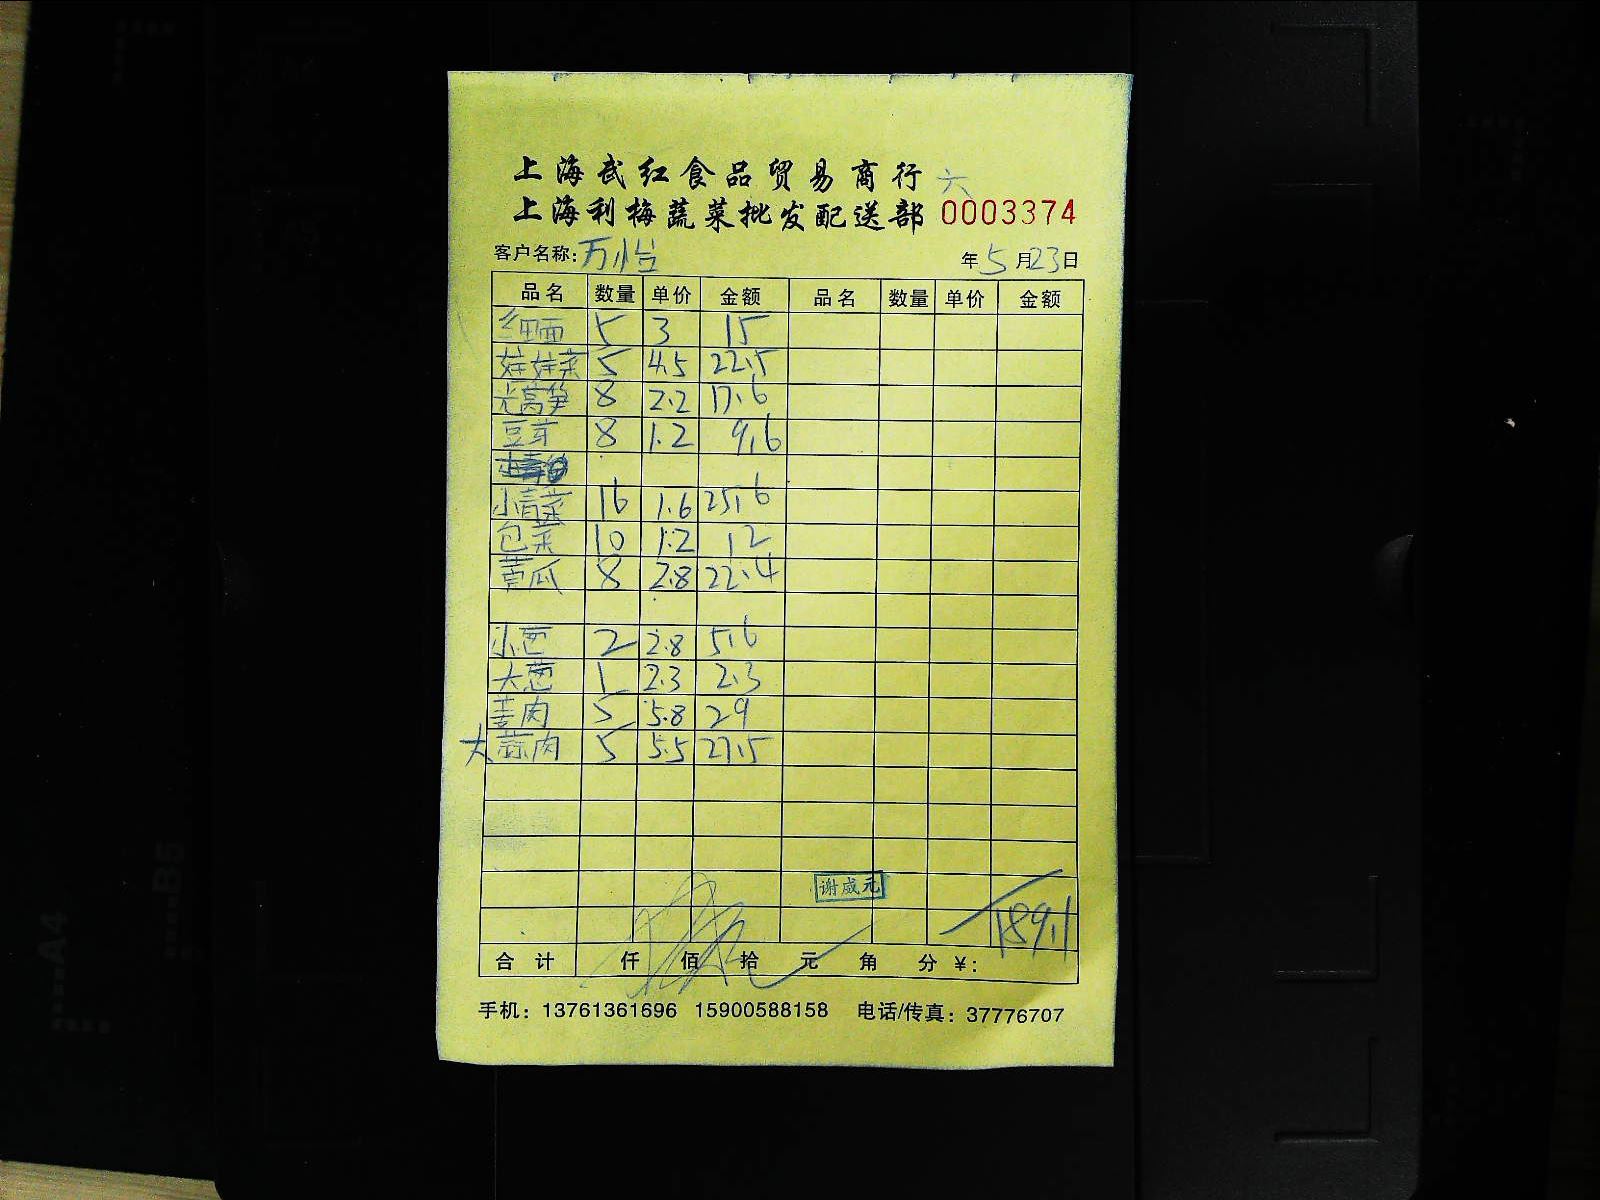 上海武红食品贸易商行 六
上海利梅蔬菜批发配送部 0003374
客户名称: 万怡 年5月23日
品名 数量 单价 金额 品名 数量 单价 金额
细面 5 3 15
娃娃菜 5 4.5 22.5
光莴笋 8 2.2 17.6
豆芽 8 1.2 9.6
小青菜 16 1.6 25.6
包菜 10 1.2 12
黄瓜 8 2.8 22.4
小葱 2 2.8 5.6
大葱 1 2.3 2.3
姜肉 5 5.8 29
大蒜肉 5 5.5 27.5
谢威元
189.1
合计 仟 佰 拾 元 角 分 ¥:
手机: 13761361696 15900588158 电话/传真: 37776707
A4
B5